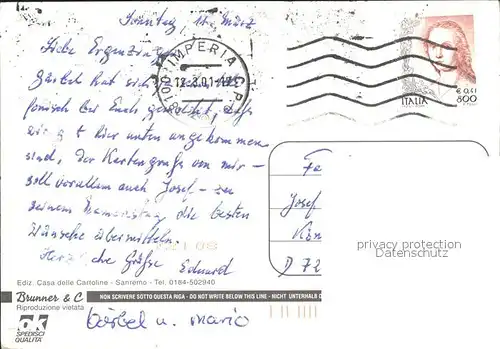 Sonntag 11. März
Liebe Ergenzinger
Bärbel hat sich
fonisch bei Euch gemeldet, daß
wir gut hier unten angekommen
sind, der Kartengruß von mir –
soll vor allem auch Josef – zu
seinem Namenstag die besten
Wünsche übermitteln.
Herzliche Grüße Eduard
Bärbel u. Mario
18100 IMPERIA C.P.
12.3.01
ITALIA
€ 0,41
800
Fa
Josef
D 72
privacy protection
Datenschutz
Ediz. Casa delle Cartoline - Sanremo - Tel. 0184-502940
Brunner & C
Riproduzione vietata
NON SCRIVERE SOTTO QUESTA RIGA - DO NOT WRITE BELOW THIS LINE - NICHT UNTERHALB D
OK
SPEDISCI
QUALITÀ